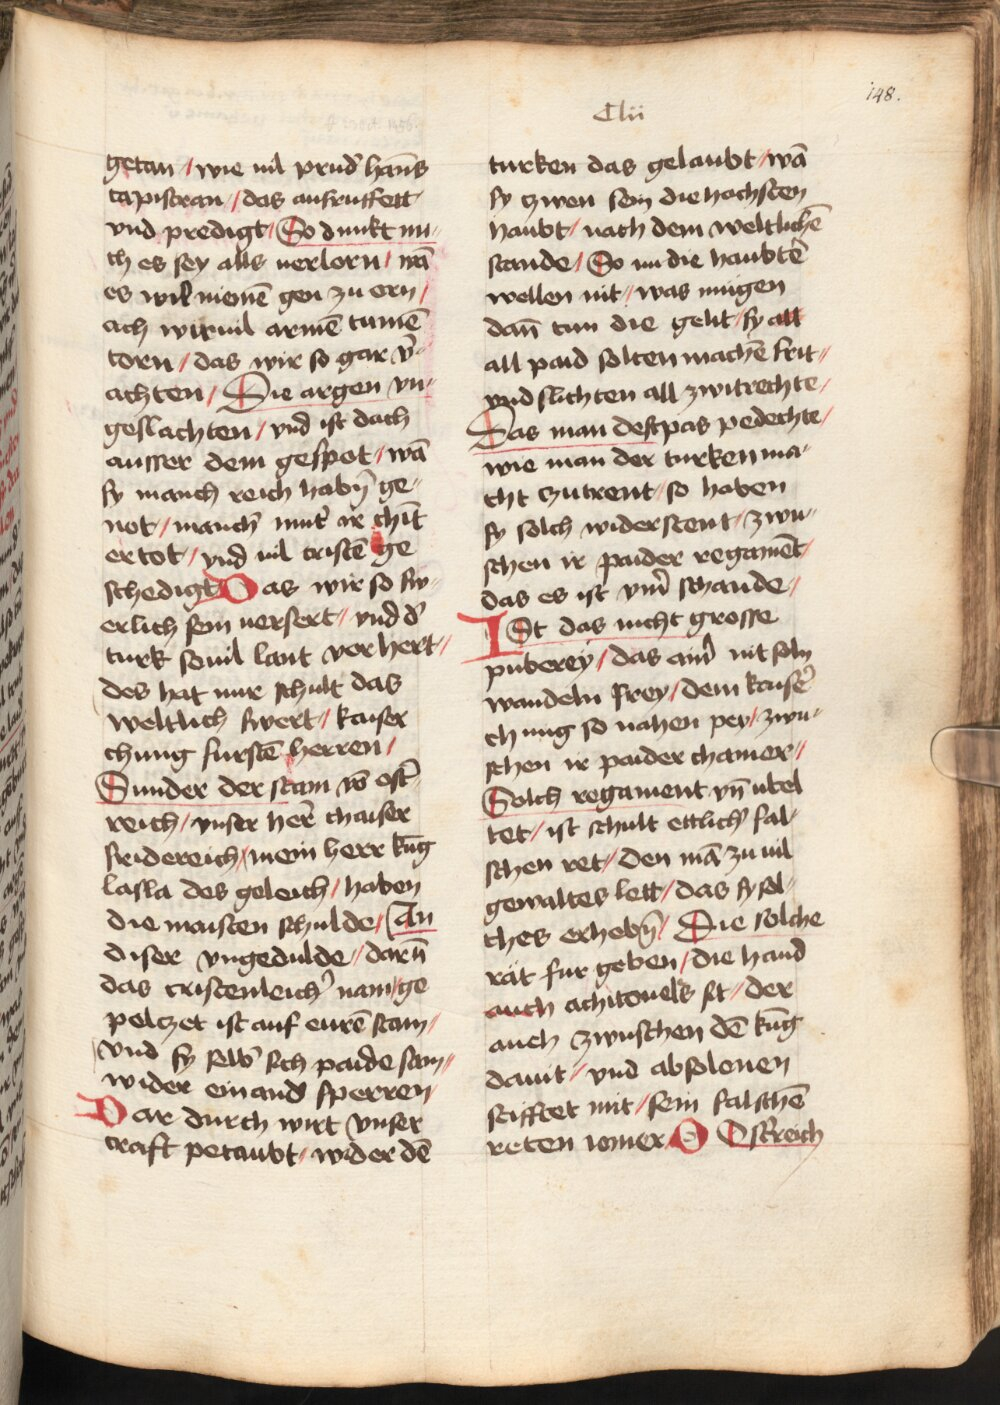 148.
Clii
getan / wie uil prud' hāns
capistran / das ausruffett
vnd predigt / So dunkt mi-
ch es sey alls uerlorn / wā
es wil niemē gen zu ern /
ach wir uil armē tumē
torn / das wir so gar v'-
achten / Die argen vn-
geslachten / vnd ist dach
ausser dem gespot / wā
sy manch reich habn̄ ge-
not / manch' mut' ir chīt
ertot / vnd uil cristē ge
schedigt Das wir so sw-
erlich sein uersert / vnd d'
turk souil lant vorhert /
des hat nur schult das
weltlich swert / kaiser
chunig furstē herren /
Sunder der stam vō ost'-
reich / vnser her̄ chaiser
fridereich / mein herr kūg
lasla des geleich / haben
die maisten schulde / An
diser vngedulde / darū
das cristenleich' nam / ge
pelczet ist auf eurē stam /
vnd sy selb' sich paide sam /
wider einand' sperren /
Dar durch wirt vnser
craft petaubt / wider dē
turken das gelaubt / wā
sy zwen sein die hochsten
haubt / nach dem weltlichē
stande / So nu die haubte
wellen nit / was mugen
dan̄ tun die gelit / sy all
all paid solten machē frit /
vnd slichten all zwitrechte /
Das man destpas pedechte /
wie man der turken ma-
cht zutrent / so haben
sy solch widerstent / zwu-
schen ir paider regamēt /
das es ist vm̄ schande /
ISt das nicht grosse
puberey / das aim̄ nit soln
wandeln frey / dem kaiser
chunig so nahen pey / zwu-
schen ir paider chamer /
Solch regament vn̄ ubel
tet / ist schult ettlich' fal-
schen ret / den mā zu uil
gewaltes lett / das sy sol-
ches erhebn̄ / Die solche
rat fur geben / die hand
auch achitouels sit / der
auch zwuschen dē kūg
dauit / vnd absolonen
stifftet mit / sein falschē
reten iomer O Osterreich